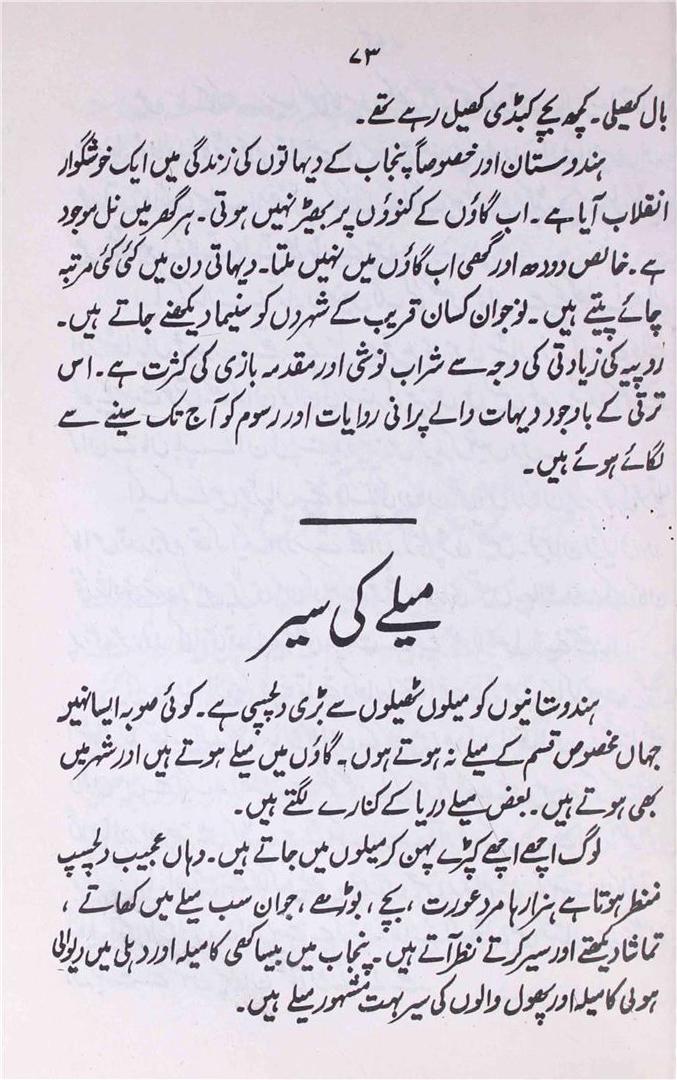 ۷۳
بال کھیلی۔ کچھ بچے کبڈی کھیل رہے تھے۔
ہندوستان اور خصوصاً پنجاب کے دیہاتوں کی زندگی میں ایک خوشگوار
انقلاب آیا ہے۔ اب گاؤں کے کنوؤں پر بھیڑ نہیں ہوتی۔ ہر گھر میں نل موجود
ہے۔ خالص دودھ اور گھی اب گاؤں میں نہیں ملتا۔ دیہاتی دن میں کئی کئی مرتبہ
چائے پیتے ہیں۔ نوجوان کسان قریب کے شہروں کو سنیما دیکھنے جاتے ہیں۔
روپیہ کی زیادتی کی وجہ سے شراب نوشی اور مقدمہ بازی کی کثرت ہے۔ اس
ترقی کے باوجود دیہات والے پرانی روایات اور رسوم کو آج تک سینے سے
لگائے ہوئے ہیں۔
میلے کی سیر
ہندوستانیوں کو میلوں ٹھیلوں سے بڑی دلچسپی ہے۔ کوئی صوبہ ایسا نہیں
جہاں مخصوص قسم کے میلے نہ ہوتے ہوں۔ گاؤں میں میلے ہوتے ہیں اور شہر میں
بھی ہوتے ہیں۔ بعض میلے دریا کے کنارے لگتے ہیں۔
لوگ اچھے اچھے کپڑے پہن کر میلوں میں جاتے ہیں۔ وہاں عجیب دلچسپ
منظر ہوتا ہے ہزارہا مرد عورت، بچے، بوڑھے، جوان سب میلے میں کھاتے،
تماشا دیکھتے اور سیر کرتے نظر آتے ہیں۔ پنجاب میں بیساکھی کا میلہ اور دہلی میں دیوالی
ہولی کا میلہ اور پھول والوں کی سیر بہت مشہور میلے ہیں۔